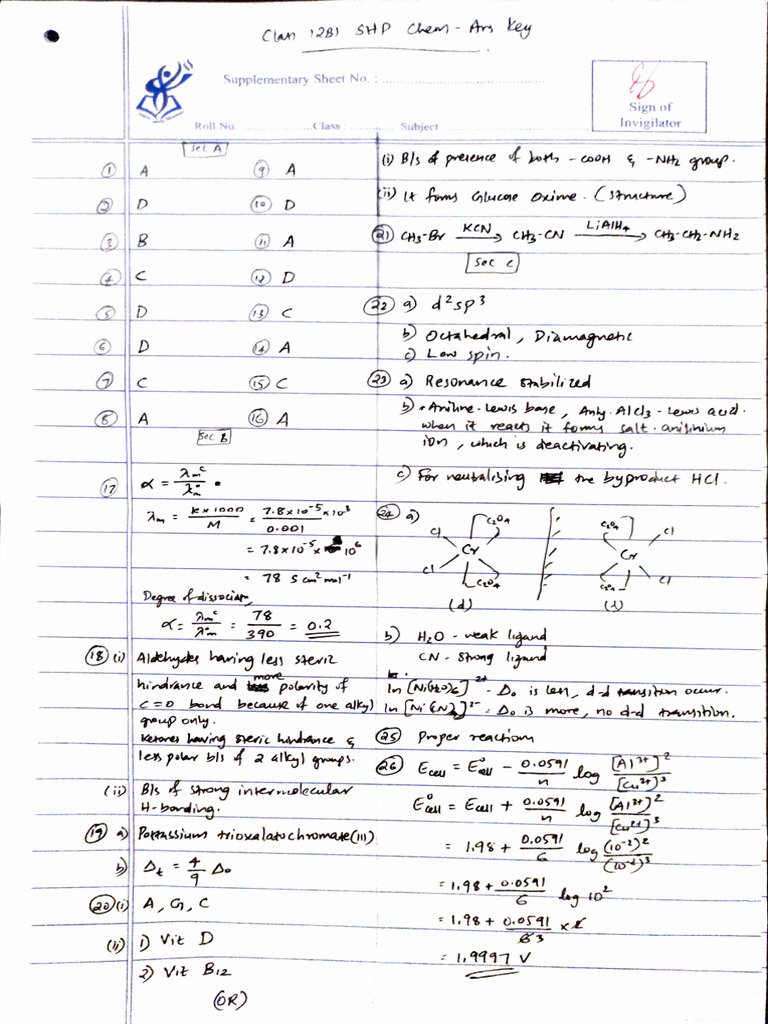 Class 12B1 SHP Chem - Ans Key
Supplementary Sheet No. :
Sign of
Invigilator
Roll No. Class : Subject
Sec A
① A ⑨ A
② D ⑩ D
③ B ⑪ A
④ C ⑫ D
⑤ D ⑬ C
⑥ D ⑭ A
⑦ C ⑮ C
⑧ A ⑯ A
Sec B
⑰ α = λm^c / λm°
λm = K×1000 / M = 7.8×10^-5×10^3 / 0.001
= 7.8×10^-5 × 10^6
= 78 S cm² mol^-1
Degree of dissociation,
α = λm^c / λ°m = 78 / 390 = 0.2
⑱ (i) Aldehydes having less steric
hindrance and more polarity of
C=O bond because of one alkyl
group only.
Ketones having steric hindrance &
less polar b/s of 2 alkyl groups.
(ii) B/s of strong intermolecular
H-bonding.
⑲ a) Potassium trioxalatochromate(III)
b) Δt = 4/9 Δo
⑳ (i) A, G, C
(ii) 1) Vit D
2) Vit B12
(OR)
(i) B/s of presence of both -COOH & -NH2 group.
(ii) It forms Glucose Oxime. (Structure)
㉑ CH3-Br KCN→ CH3-CN LiAlH4→ CH3-CH2-NH2
Sec C
㉒ a) d²sp³
b) Octahedral, Diamagnetic
c) Low spin.
㉓ a) Resonance stabilized
b) Aniline-Lewis base, Anhy. AlCl3 - Lewis acid.
when it reacts it forms salt-anilinium
ion, which is deactivating.
c) For neutralising the byproduct HCl.
㉔ a)
C2O4 C2O4
Cl Cl
Cr Cr
Cl Cl
C2O4 C2O4
(d) (l)
b) H2O - weak ligand
CN - Strong ligand
In [Ni(H2O)6]²⁺ - Δo is less, d-d transition occur.
In [Ni(CN)4]²⁻ = Δo is more, no d-d transition.
㉕ Proper reactions
㉖ Ecell = E°cell - 0.0591/n log [Al³⁺]²/[Cu²⁺]³
E°cell = Ecell + 0.0591/n log [Al³⁺]²/[Cu²⁺]³
= 1.98 + 0.0591/6 log (10^-2)²/(10^-2)³
= 1.98 + 0.0591/6 log 10²
= 1.98 + 0.0591/3
= 1.9997 V